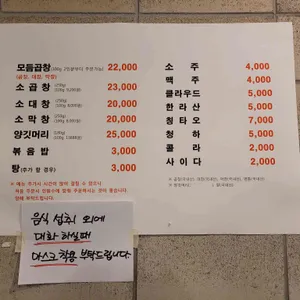 모듬곱창 22,000
(곱창, 대창, 막창)
소곱창 23,000
소대창 20,000
소막창 20,000
양깃머리 25,000
볶음밥 3,000
탕(추가 할 경우) 3,000
소주 4,000
맥주 4,000
클라우드 5,000
한라산 5,000
청타오 7,000
청하 5,000
콜라 2,000
사이다 2,000
음식 섭취 외에
대화 하실때
마스크 착용 부탁드립니다